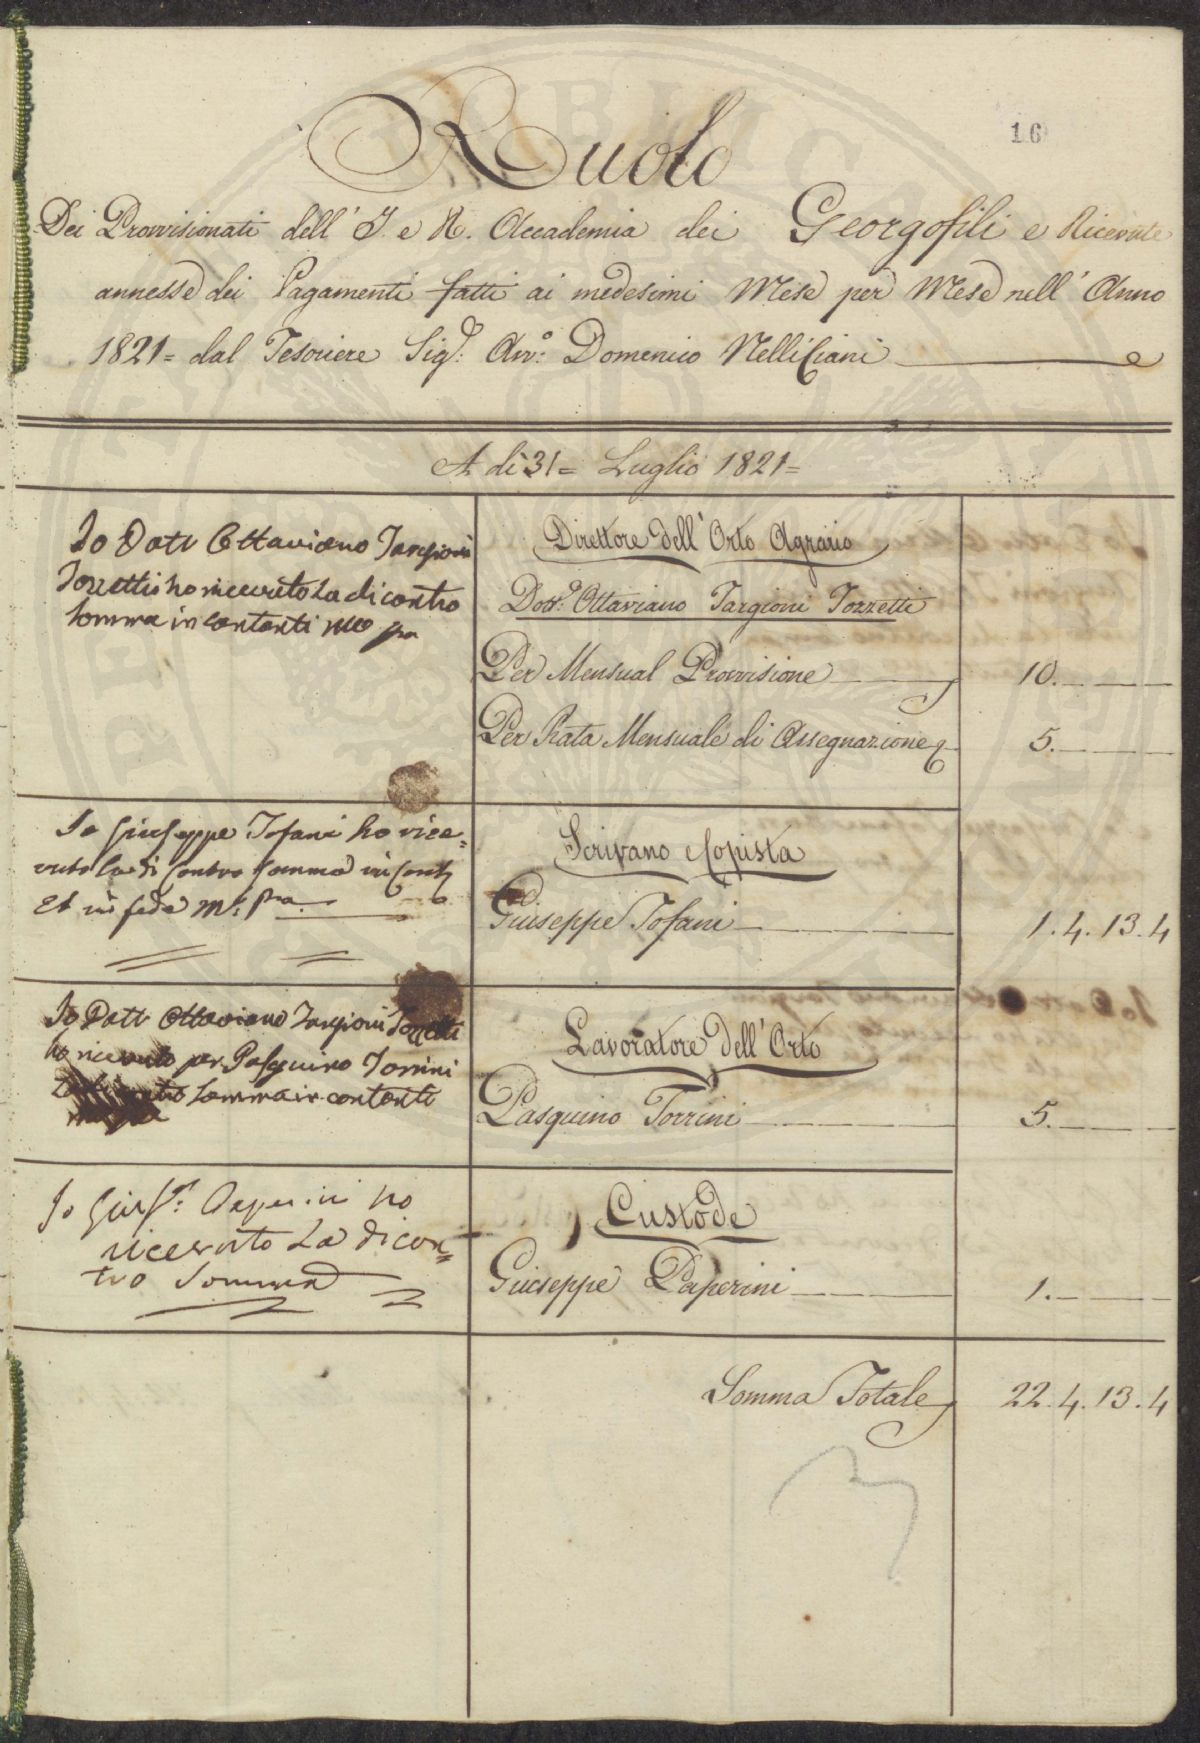 16
Ruolo
Dei Provvisionati dell' I. e R. Accademia dei Georgofili e Ricevute
annesse dei Pagamenti fatti ai medesimi Mese per Mese nell' Anno
1821= dal Tesoriere Sig.e Avv.o Domenico Nelli Ciani
A di 31= Luglio 1821=
Io Dott Ottaviano Targioni
Tozzetti ho ricevuto La di contro
Somma in contanti mo pa
Direttore dell' Orto Agrario
Dott.e Ottaviano Targioni Tozzetti
Per Mensual Provvisione 10.
Per Rata Mensuale di Assegnazione 5.
Io Giuseppe Tofani ho rice=
vuto la di contro somma in Conti
Et in fede m.o p.a
Scrivano e Copista
Giuseppe Tofani 1. 4. 13. 4
Io Dott Ottaviano Targioni Tozzetti
ho ricevuto per Pasquino Torrini
Somma in contanti
Lavoratore dell' Orto
Pasquino Torrini 5.
Io Gius.e Paperini ho
ricevuto La di con=
tro Somma
Custode
Giuseppe Paperini 1.
Somma Totale 22. 4. 13. 4